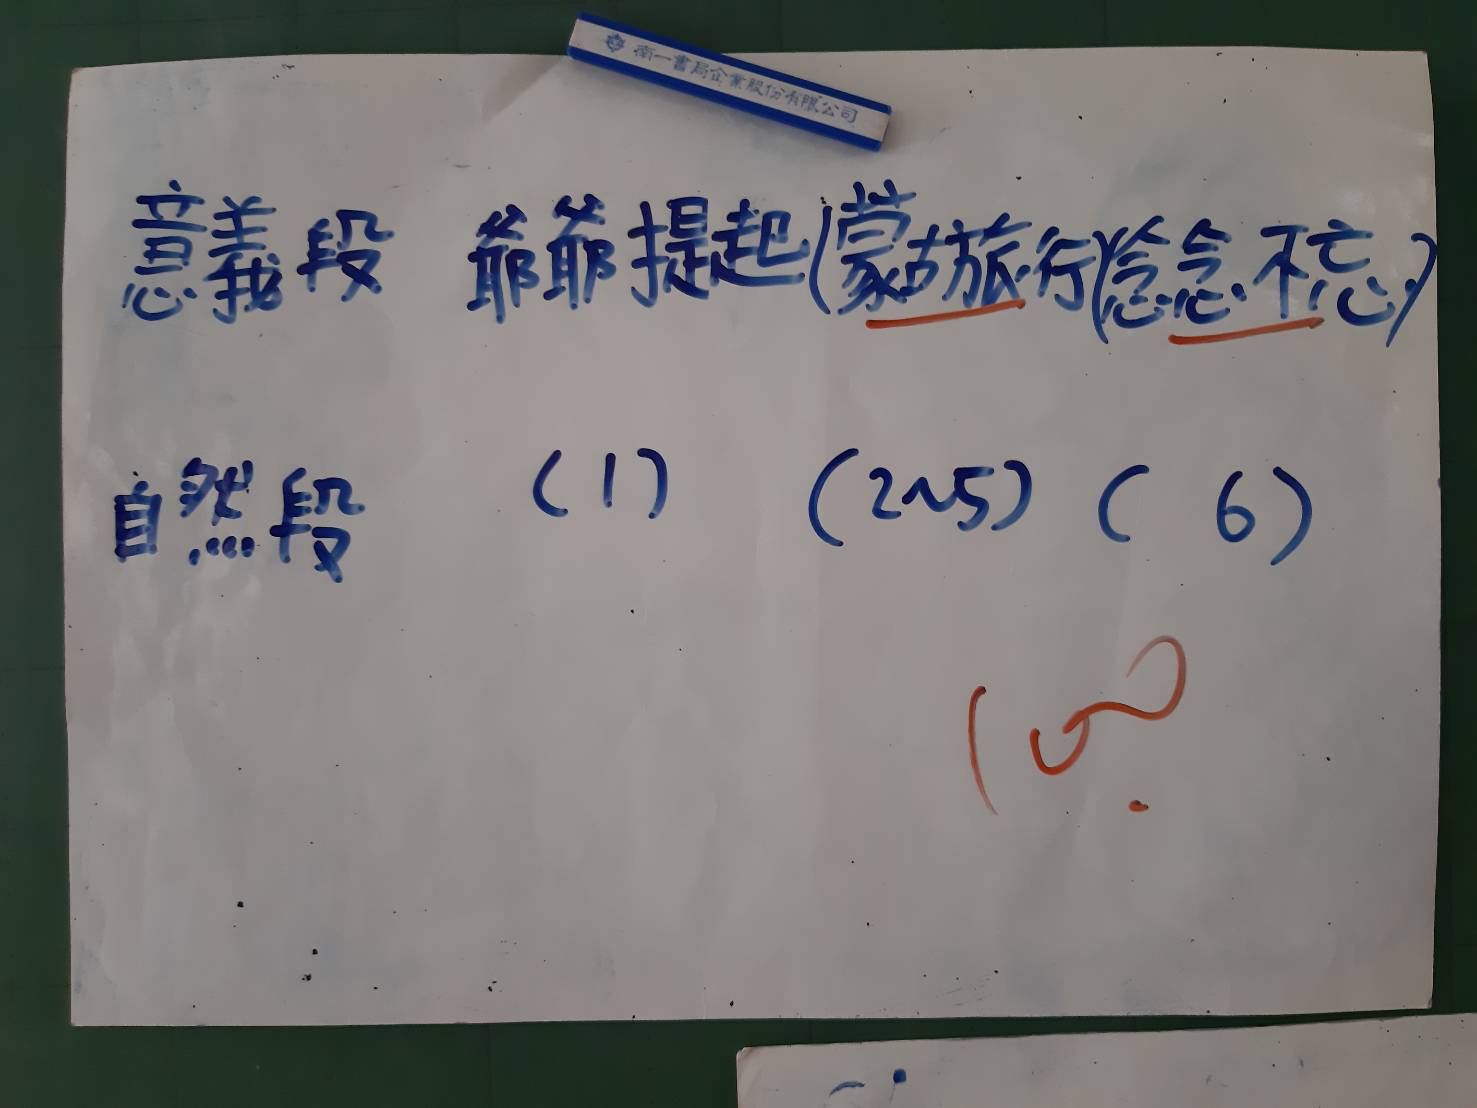 南一書局企業股份有限公司
意義段 爺爺提起(蒙古旅行(念念不忘)
自然段 (1) (2~5) ( 6)
100